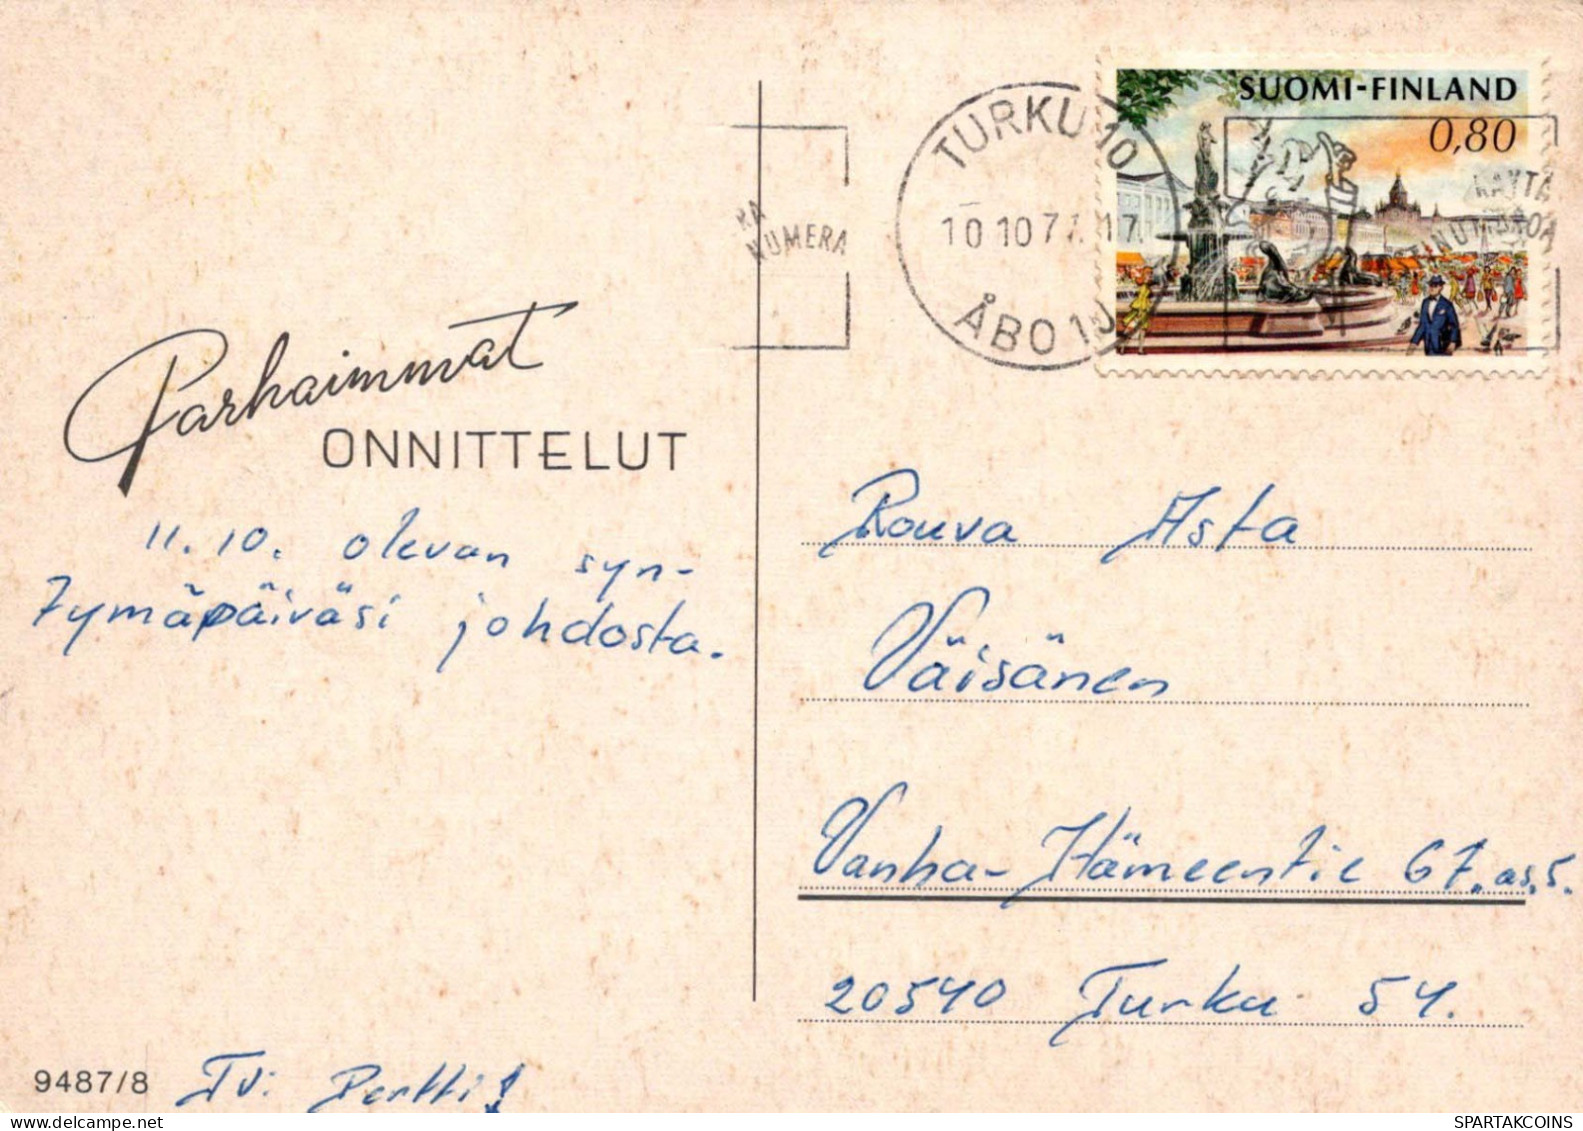 SUOMI-FINLAND
0,80
TURKU 10
10 10 77. 17
ÅBO 10
KÄYTÄ
NUMERA
Parhaimmat
ONNITTELUT
11.10. olevan syn-
tymäpäiväsi johdosta.
Rouva Asta
Väisänen
Vanha-Hämeentie 67.as.5.
20540 Turku 54.
9487/8 Tv: Pertti!
SPARTAKCOINS